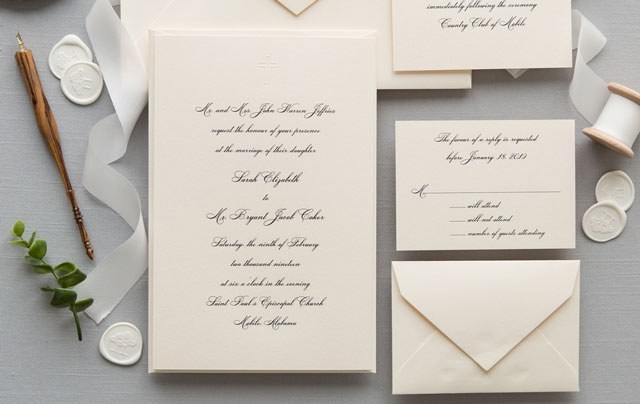 Mr. and Mrs. John Warren Jeffries
request the honour of your presence
at the marriage of their daughter
Sarah Elizabeth
to
Mr. Bryant Jacob Coker
Saturday, the ninth of February
two thousand nineteen
at six o'clock in the evening
Saint Paul's Episcopal Church
Mobile, Alabama
immediately following the ceremony
Country Club of Mobile
The favour of a reply is requested
before January 18, 2019
M
will attend
will not attend
number of guests attending